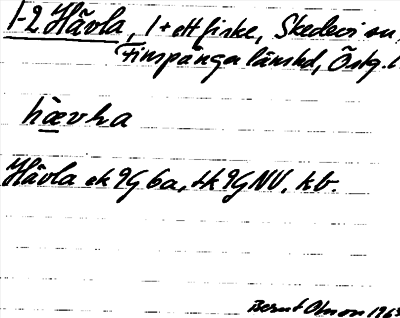 1-2 Hävla, 1 + ett fiske, Skedevi sn,
Finspånga länshd, Östg. l
hævla
Hävla ek 9G 6a, tk 9G NV, kb.
Bernt Olsson 1963